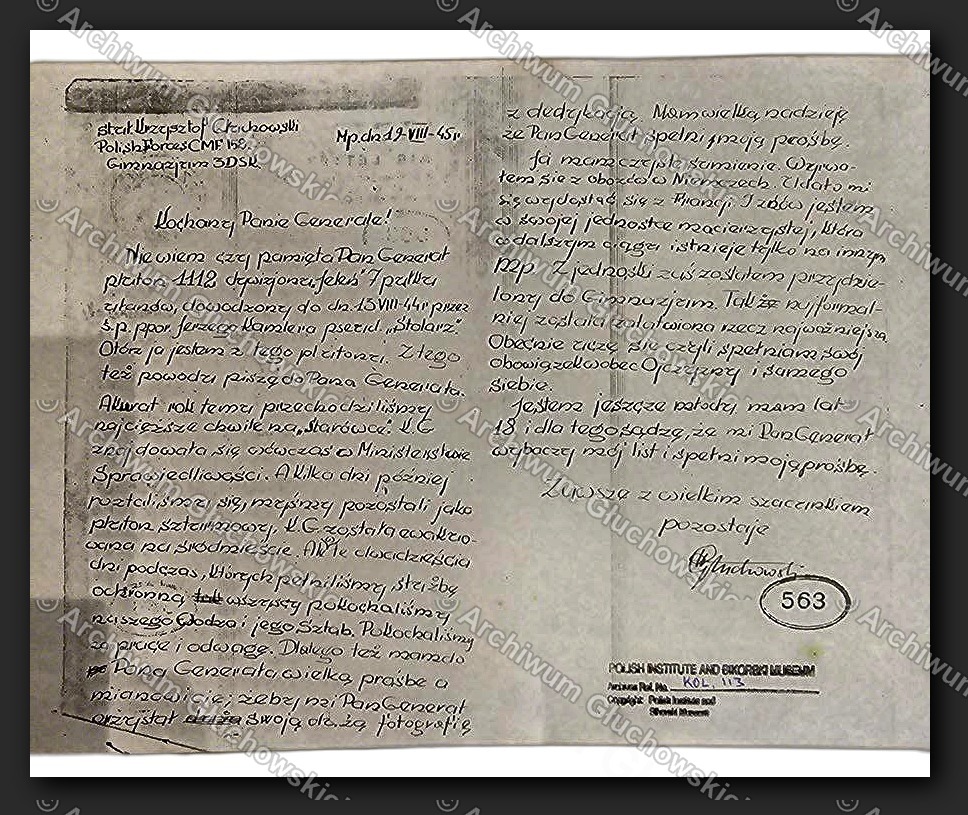 strz. Krzysztof Głuchowski
Polish Forces CMF 158.
Gimnazjum 3DSK
Mp. dn 19-VIII-45r
Kochany Panie Generale!
Nie wiem czy pamięta Pan Generał
pluton 1112 dywizjonu „Jeleń" 7 pułku
ułanów, dowodzony do dn. 13 VIII-44r przez
ś.p. ppor. Jerzego Kamlera pseud. „Stolarz".
Otóż ja jestem z tego plutonu. Z tego
też powodu piszę do Pana Generała.
Akurat rok temu przechodziliśmy
najcięższe chwile na „Starówce". K.G
znajdowała się wówczas w Ministerstwie
Sprawiedliwości. A kilka dni później
rozstaliśmy się, myśmy pozostali jako
pluton szturmowy, K.G została ewakuo-
wana na śródmieście. Ale te dwadzieścia
dni podczas, których pełniliśmy służbę
ochronną wszyscy pokochaliśmy
naszego Wodza i jego Sztab. Pokochaliśmy
za pracę i odwagę. Dlatego też mam do
Pana Generała wielką prośbę a
mianowicie; żeby mi Pan Generał
przysłał swoją dużą fotografię
z dedykacją. Mam wielką nadzieję
że Pan Generał spełni moją prośbę.
Ja mam czyste sumienie. Wyrwa-
łem się z obozów w Niemczech. Udało mi
się wydostać się z Francji I znów jestem
w swojej jednostce macierzystej, która
w dalszym ciągu istnieje tylko na innym
mp. Z jednostki zaś zostałem przydzie-
lony do Gimnazjum. Tak że najformal-
niej została załatwiona rzecz najważniejsza.
Obecnie uczę się czyli spełniam swój
obowiązek wobec Ojczyzny i samego
siebie.
Jestem jeszcze młody mam lat
18 i dla tego sądzę, że mi Pan Generał
wybaczy mój list i spełni moją prośbę.
Zawsze z wielkim szacunkiem
pozostaje
KGłuchowski
563
POLISH INSTITUTE AND SIKORSKI MUSEUM
Archives Ref. No. KOL. 113
Copyright: Polish Institute and
Sikorski Museum
© Archiwum Głuchowskich